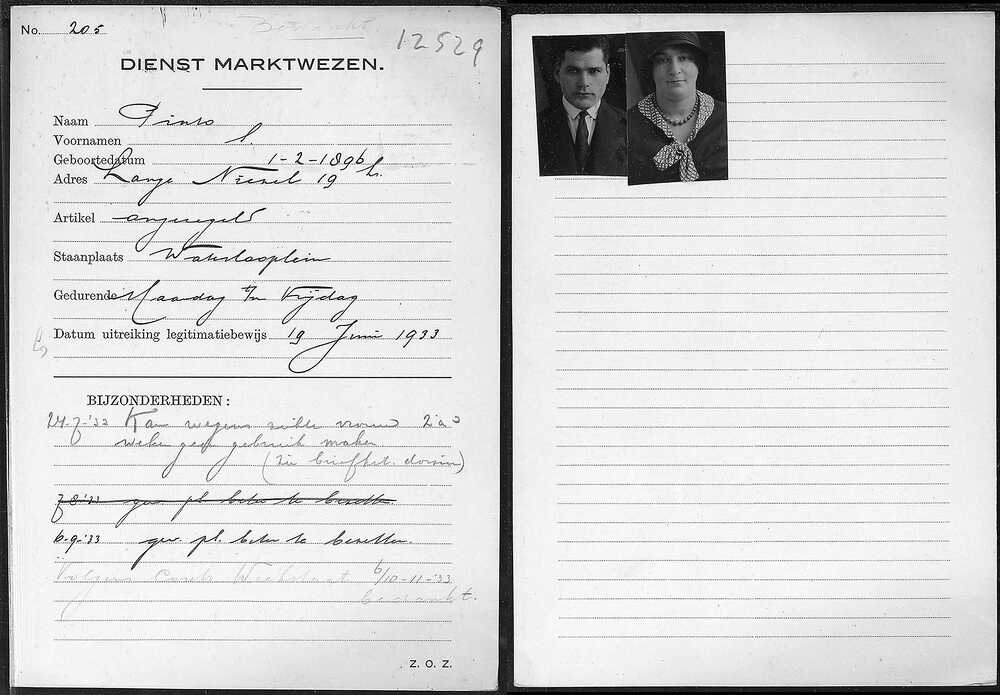 No. 205
Bedankt
12529
DIENST MARKTWEZEN.
Naam Pinto
Voornamen S.
Geboortedatum 1-2-1896
Adres Lange Niezel 19 hs.
Artikel ongeregeld
Staanplaats Waterlooplein
Gedurende Maandag t/m Vrijdag
Datum uitreiking legitimatiebewijs 19 Juni 1933
BIJZONDERHEDEN:
24-7-'33 Kan wegens ziekte vrouw 2 à 3
weken geen gebruik maken
(zie briefket. dossier)
7-8-'33 gew. pl. beter te bezetten.
6-9-'33 gew. pl. beter te bezetten.
Volgens Contr. 6/10-11-'33
bedankt.
Z. O. Z.